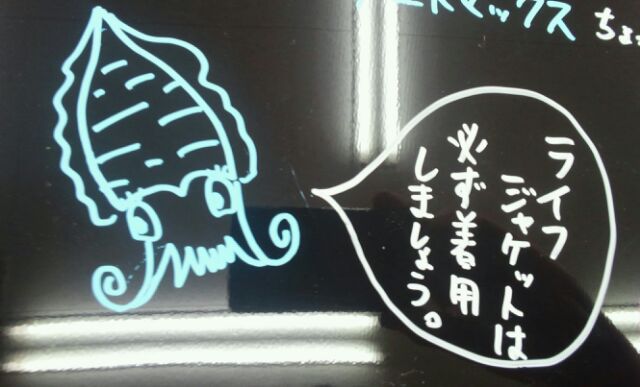 マックス ちょ
ライフ
ジャケットは
必ず着用
しましょう。